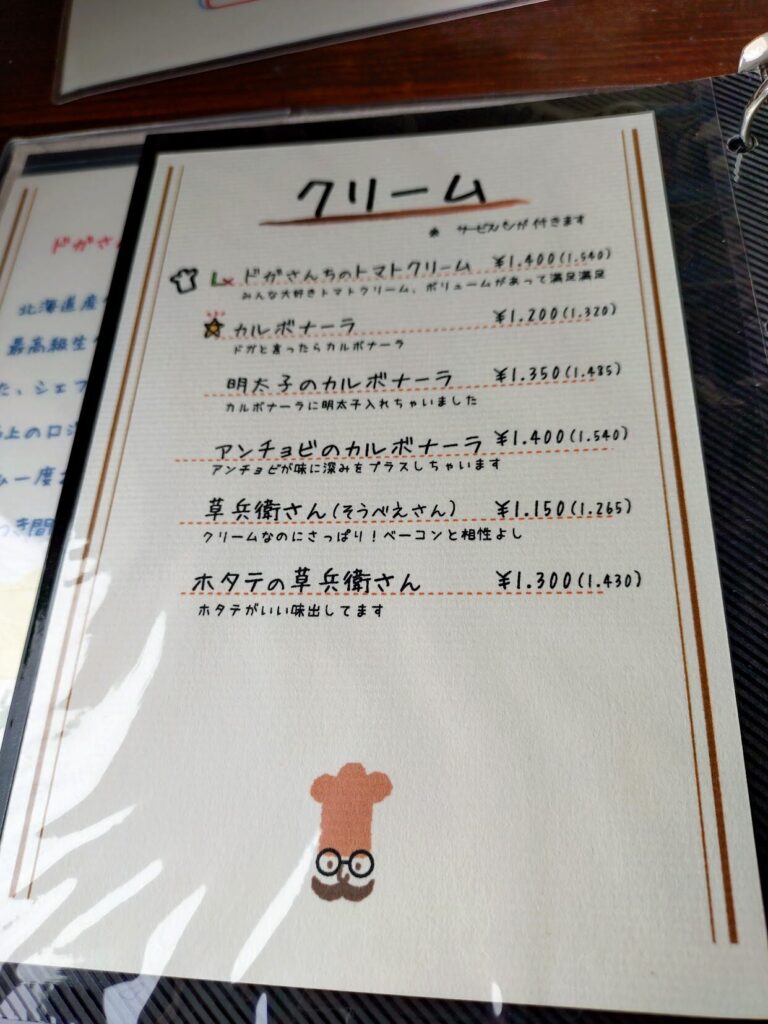 クリーム
サービスパンが付きます
ドガさんちのトマトクリーム ¥1.400(1.540)
みんな大好きトマトクリーム、ボリュームがあって満足満足
カルボナーラ ¥1.200(1.320)
ドガと言ったらカルボナーラ
明太子のカルボナーラ ¥1.350(1.485)
カルボナーラに明太子入れちゃいました
アンチョビのカルボナーラ ¥1.400(1.540)
アンチョビが味に深みをプラスしちゃいます
草兵衛さん(そうべえさん) ¥1.150(1.265)
クリームなのにさっぱり!ベーコンと相性よし
ホタテの草兵衛さん ¥1.300(1.430)
ホタテがいい味出してます
ドガさん
北海道産
最高級生
た、シェフ
上の口
一度
き間